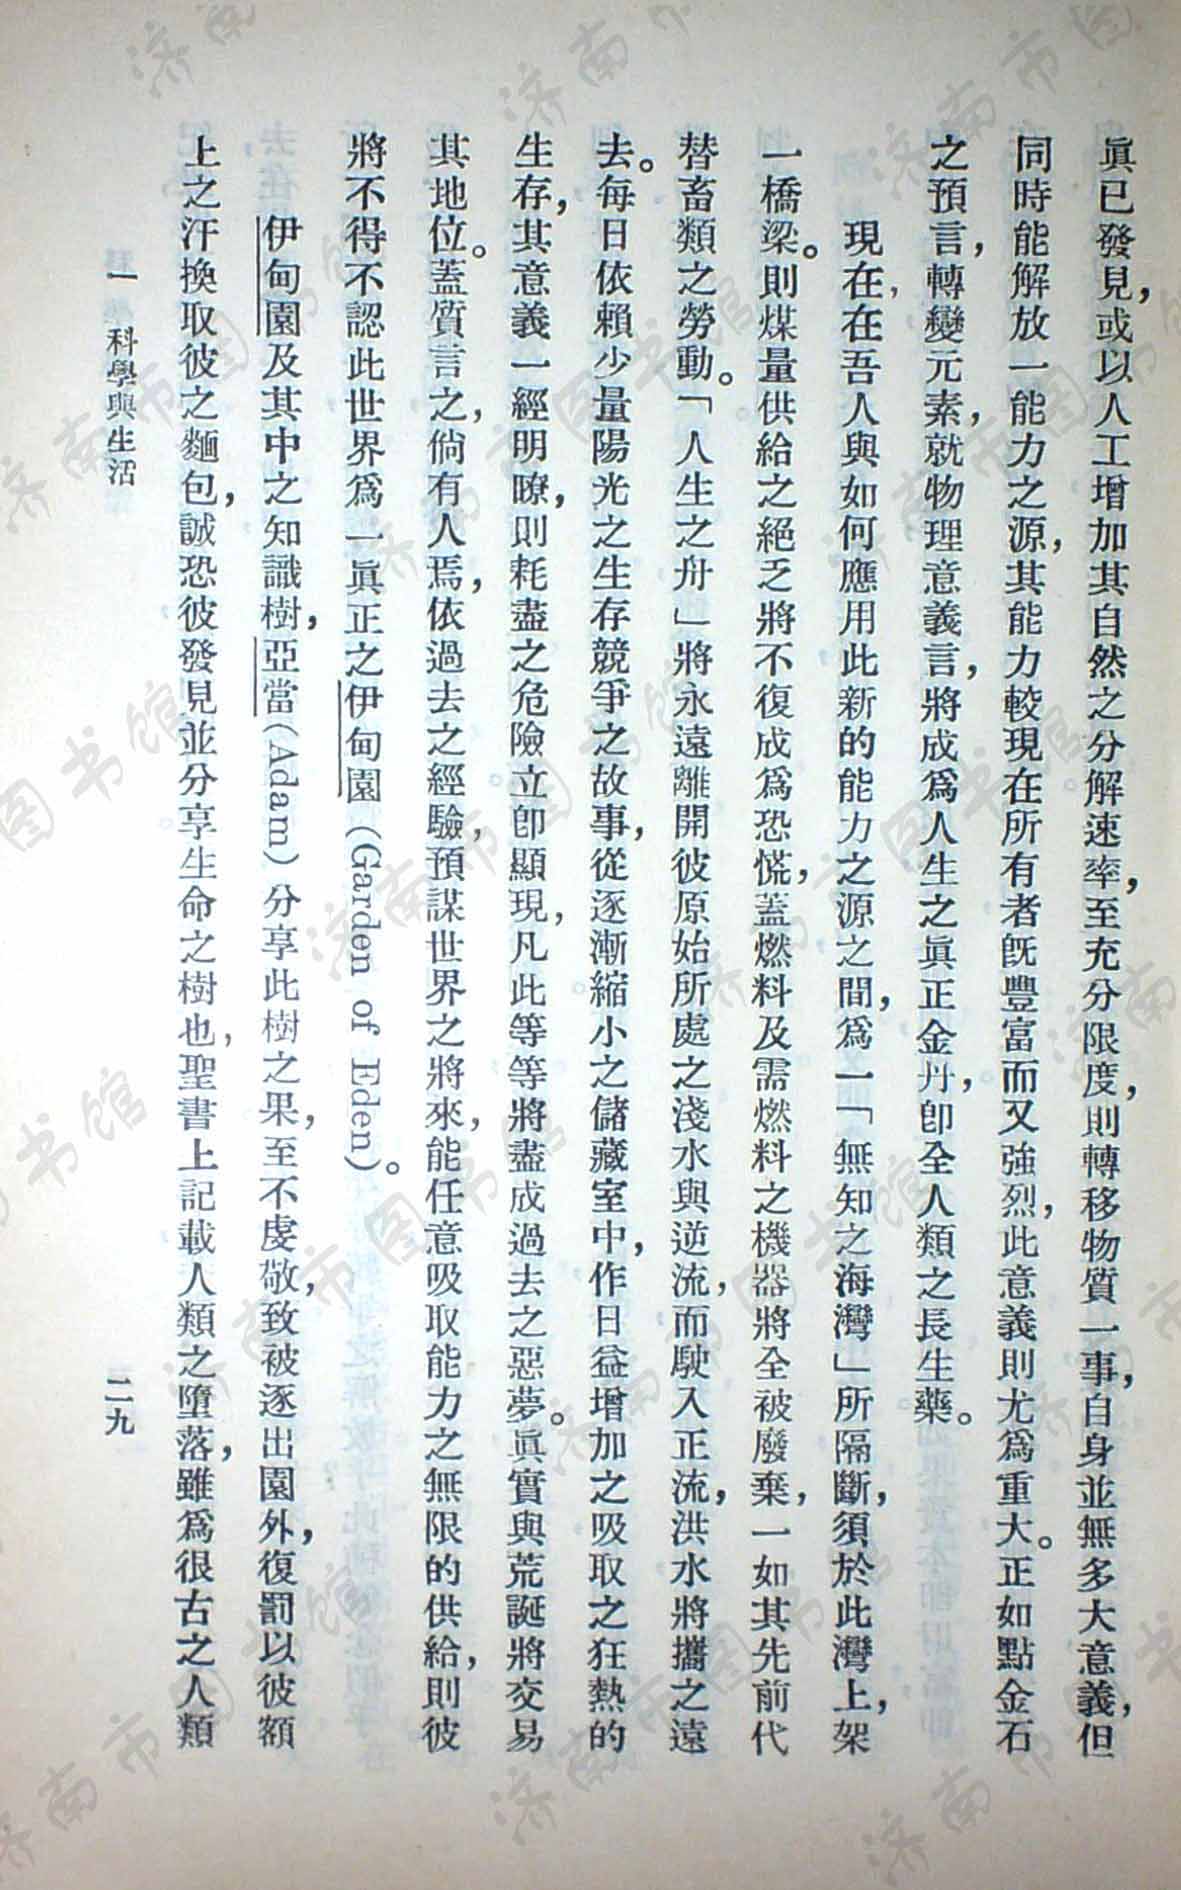 眞已發見，或以人工增加其自然之分解速率，至充分限度，則轉移物質一事，自身並無多大意義，但
同時能解放一能力之源，其能力較現在所有者旣豐富而又強烈，此意義則尤爲重大。正如點金石
之預言，轉變元素，就物理意義言，將成爲人生之眞正金丹，卽全人類之長生藥。
現在，在吾人與如何應用此新的能力之源之間，爲一「無知之海灣」所隔斷，須於此灣上，架
一橋梁。則煤量供給之絕乏將不復成爲恐慌，蓋燃料及需燃料之機器將全被廢棄，一如其先前代
替畜類之勞動。「人生之舟」將永遠離開彼原始所處之淺水與逆流，而駛入正流，洪水將攜之遠
去。每日依賴少量陽光之生存競爭之故事，從逐漸縮小之儲藏室中，作日益增加之吸取之狂熱的
生存，其意義一經明瞭，則耗盡之危險立卽顯現，凡此等等將盡成過去之惡夢。眞實與荒誕將交易
其地位。蓋質言之，倘有人焉，依過去之經驗，預謀世界之將來，能任意吸取能力之無限的供給，則彼
將不得不認此世界爲一眞正之伊甸園（Garden of Eden）。
伊甸園及其中之知識樹，亞當（Adam）分享此樹之果，至不虔敬，致被逐出園外，復罰以彼額
上之汗換取彼之麵包，誠恐彼發見並分享生命之樹也，聖書上記載人類之墮落，雖爲很古之人類
一　科學與生活
二九
济南市图书馆